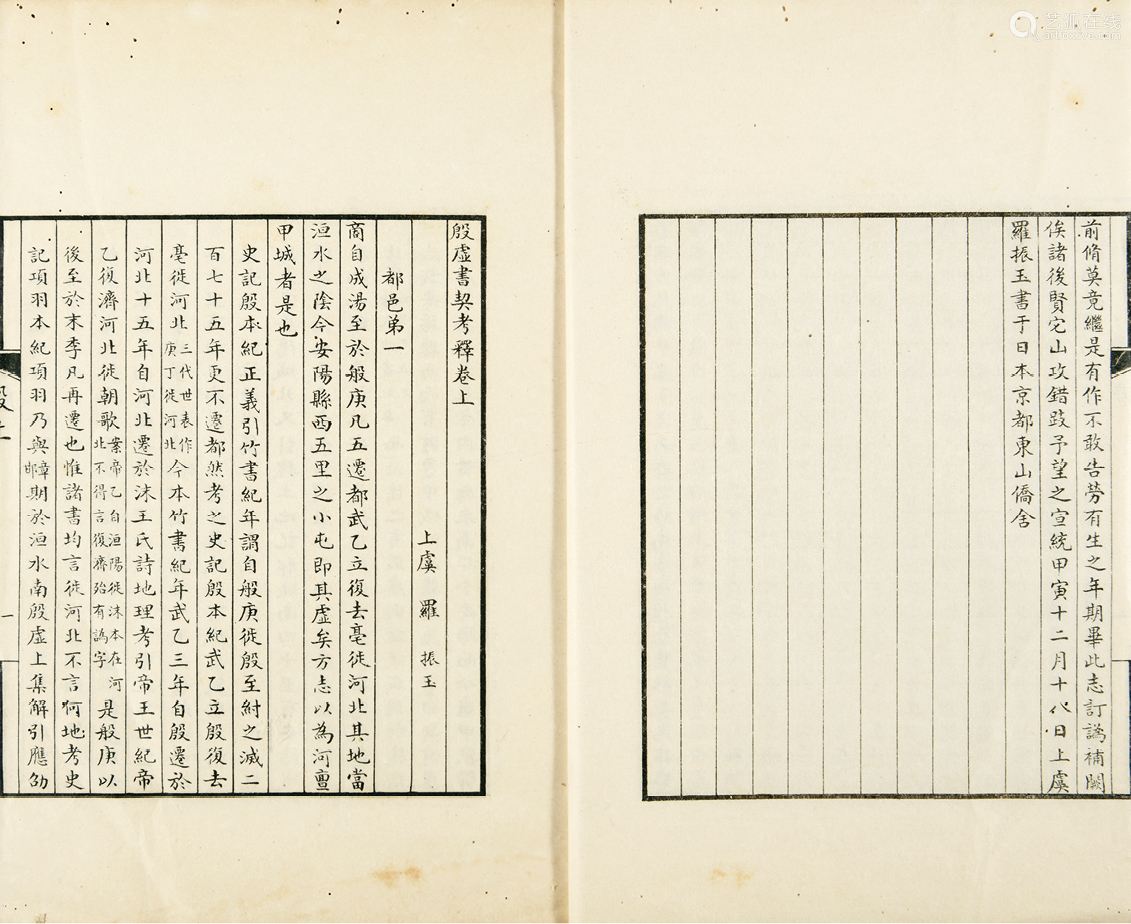 前脩莫竟繼是有作不敢告勞有生之年期畢此志訂譌補闕
俟諸後賢它山攻錯跂予望之宣統甲寅十二月十八日上虞
羅振玉書于日本京都東山僑舍
殷虛書契考釋卷上
上虞 羅 振玉
都邑弟一
商自成湯至於般庚凡五遷都武乙立復去亳徙河北其地當
洹水之陰今安陽縣西五里之小屯即其虛矣方志以為河亶
甲城者是也
史記殷本紀正義引竹書紀年謂自般庚徙殷至紂之滅二
百七十五年更不遷都然考之史記殷本紀武乙立殷復去
亳徙河北三代世表作庚丁徙河北今本竹書紀年武乙三年自殷遷於
河北十五年自河北遷於沬王氏詩地理考引帝王世紀帝
乙復濟河北徙朝歌案帝乙自洹陽徙沬本在河北不得言復濟殆有譌字是般庚以
後至於末季凡再遷也惟諸書均言徙河北不言何地考史
記項羽本紀項羽乃與章邯期於洹水南殷虛上集解引應劭
殷上
一
艺狐在线
artfoxlive.com